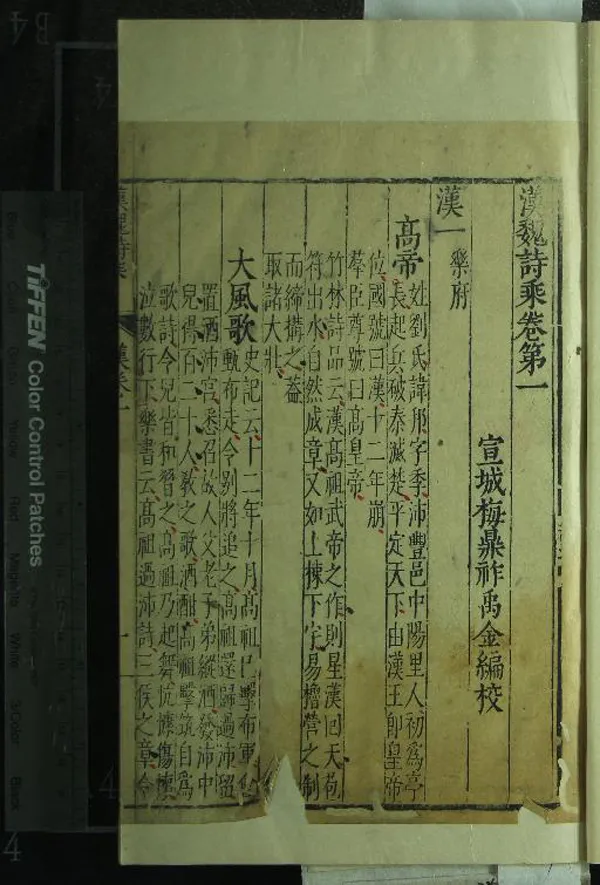 漢魏詩乘卷第一
宣城梅鼎祚禹金編校
漢一 樂府
高帝 姓劉氏諱邦字季沛豐邑中陽里人初為亭
長起兵破秦滅楚平定天下由漢王即皇帝
位國號曰漢十二年崩
羣臣尊號曰高皇帝
竹林詩品云漢高祖武帝之作則星漢回天苞
符出水自然成章又如上棟下宇易檐營之制
而締搆之葢
取諸大壯
大風歌 史記云十二年十月高祖已擊布軍
甄布走令别將追之高祖還歸過沛留
置酒沛宮悉召故人父老子弟縱酒發沛中
兒得百二十人教之歌酒酣高祖擊筑自為
歌詩令兒皆和習之高祖乃起舞忼慷傷懷
泣數行下樂書云高祖過沛詩三侯之章令
漢魏詩乘
漢卷一
一
TIFFEN Color Control Patches
Blue
Cyan
Green
Yellow
Red
Magenta
White
3/Color
Black
B4
4
A4
4